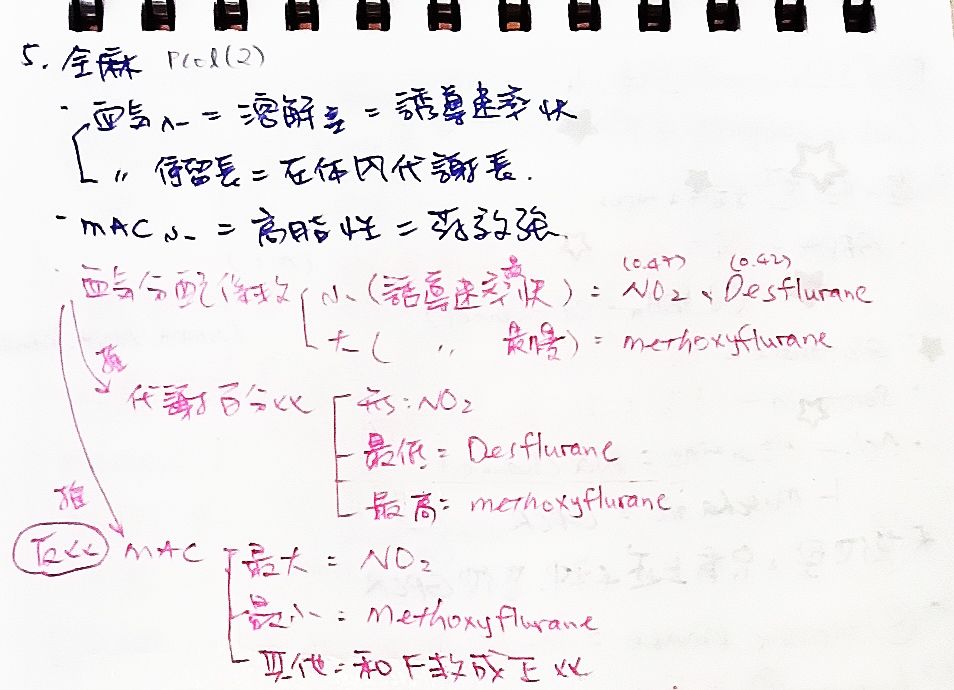 5. 全麻 Pcol(2)
· 血氣小 = 溶解差 = 誘導速率快
〃 停留長 = 在体內代謝長.
· MAC小 = 高脂性 = 藥效強.
· 血氣分配係数 小 (誘導速率最快) = NO2、Desflurane (0.47) (0.42)
大 ( 〃 最慢) = methoxyflurane
推
代謝百分比 无: NO2
最低 = Desflurane
最高 = methoxyflurane
推
反比 MAC 最大 = NO2
最小 = Methoxyflurane
其他 = 和F数成正比